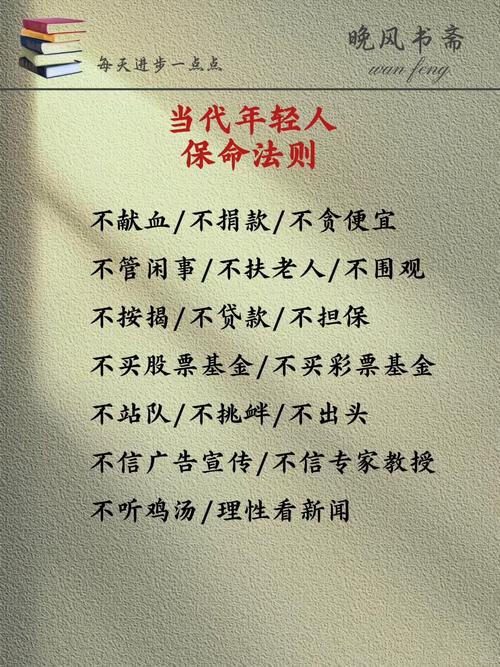 每天进步一点点
晚风书斋
wan feng
当代年轻人
保命法则
不献血/不捐款/不贪便宜
不管闲事/不扶老人/不围观
不按揭/不贷款/不担保
不买股票基金/不买彩票基金
不站队/不挑衅/不出头
不信广告宣传/不信专家教授
不听鸡汤/理性看新闻